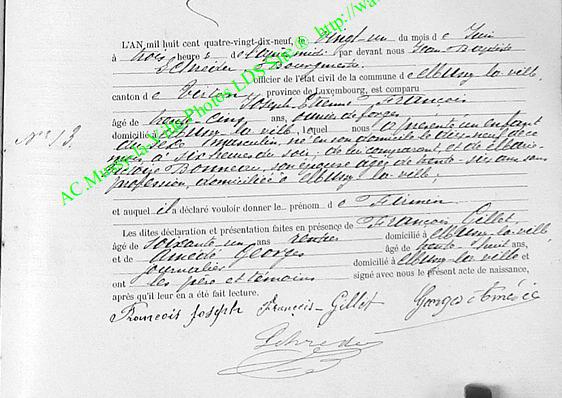 L'AN mil huit cent quatre-vingt-dix-neuf, le Vingt-un du mois de Juin
à trois heures de l'après-midi par devant nous Jean-Baptiste
Schneider Bourgmestre
officier de l'état civil de la commune de Mussy la ville,
canton de Virton, province de Luxembourg, est comparu
Joseph François
âgé de trente-cinq ans, ouvrier de forges
domicilié à Mussy la ville, lequel nous a présenté un enfant
du sexe masculin, né en son domicile le dix-neuf de ce
mois, à six heures du soir, de lui comparant, et de Marie
Bonneau, son épouse âgée de trente-six ans sans
profession, domiciliée à Mussy la ville;
et auquel il a déclaré vouloir donner le prénom de Firmin
Les dites déclaration et présentation faites en présence de François Gillet,
âgé de soixante un ans rentier domicilié à Mussy la ville
et de Amédé Georges âgé de trente huit ans,
journalier domicilié à Mussy la ville et
ont les père et témoins signé avec nous le présent acte de naissance,
après qu'il leur en a été fait lecture.
François Joseph François Gillet Georges Amédée
Schneider
N° 13.
AC Mussy-la-Ville Photos LDS Site ® http://wa